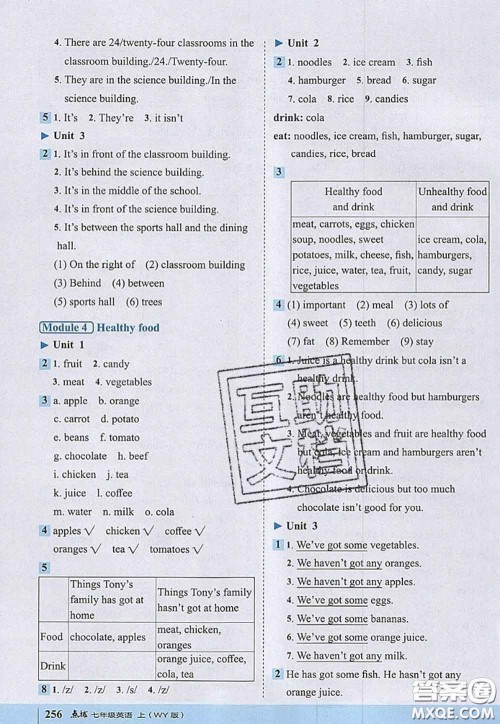 4. There are 24/twenty-four classrooms in the
classroom building./24./Twenty-four.
5. They are in the science building./In the
science building.
5 1. It's 2. They're 3. it isn't
▶ Unit 3
2 1. It's in front of the classroom building.
2. It's behind the science building.
3. It's in the middle of the school.
4. It's in front of the science building.
5. It's between the sports hall and the dining
hall.
(1) On the right of (2) classroom building
(3) Behind (4) between
(5) sports hall (6) trees
Module 4 Healthy food
▶ Unit 1
2 1. fruit 2. candy
3. meat 4. vegetables
3 a. apple b. orange
c. carrot d. potato
e. beans f. tomato
g. chocolate h. beef
i. chicken j. tea
k. juice l. coffee
m. water n. milk o. cola
4 apples √ chicken √ coffee √
oranges √ tea √ tomatoes √
5
Things Tony's
family has got at
home
Things Tony's family
hasn't got at home
Food chocolate, apples
meat, chicken,
oranges
Drink
orange juice, coffee,
tea, cola
8 1. /z/ 2. /s/ 3. /z/ 4. /z/ 5. /z/
256 点拨 七年级英语 上(WY版)
▶ Unit 2
2 1. noodles 2. ice cream 3. fish
4. hamburger 5. bread 6. sugar
7. cola 8. rice 9. candies
drink: cola
eat: noodles, ice cream, fish, hamburger, sugar,
candies, rice, bread
3
Healthy food
and drink
Unhealthy food
and drink
meat, carrots, eggs, chicken
soup, noodles, sweet
potatoes, milk, cheese, fish,
rice, juice, water, tea, fruit,
vegetables
ice cream, cola,
hamburgers,
candy, sugar
4 (1) important (2) meal (3) lots of
(4) sweet (5) teeth (6) delicious
(7) fat (8) Remember (9) stay
6 1. Juice is a healthy drink but cola isn't a
healthy drink.
2. Noodles are healthy food but hamburgers
aren't healthy food.
3. Meat, vegetables and fruit are healthy food
but cola, ice cream and hamburgers aren't
healthy food or drink.
4. Chocolate is delicious but too much
chocolate isn't good for you.
▶ Unit 3
1 1. We've got some vegetables.
2. We haven't got any oranges.
3. We haven't got any apples.
4. We've got some eggs.
5. We've got some bananas.
6. We've got some orange juice.
7. We haven't got any orange juice.
2 He has got some fish. He hasn't got any
coffee.
互助
文档
答案圈
MXQE.COM